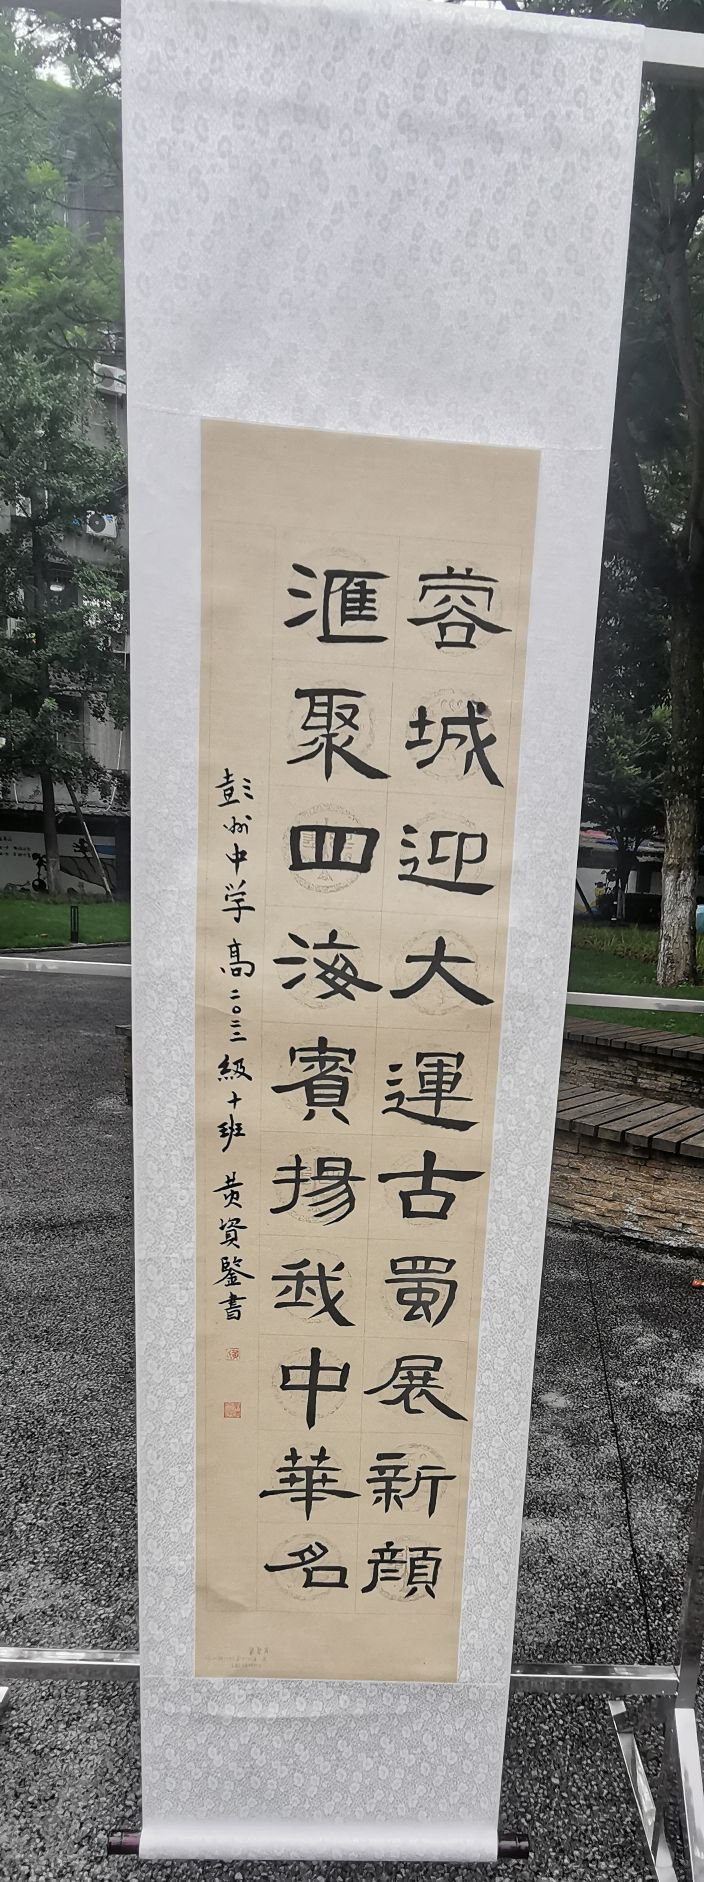 蓉城迎大運古蜀展新顔
滙聚四海賓揚我中華名
彭州中学高二〇二二級十班 黄資鑒書